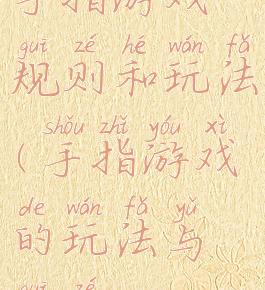 手指游戏
guī zé hé wán fǎ
规则和玩法
shǒu zhǐ yóu xì
(手指游戏
de wán fǎ yǔ
的玩法与
guī zé